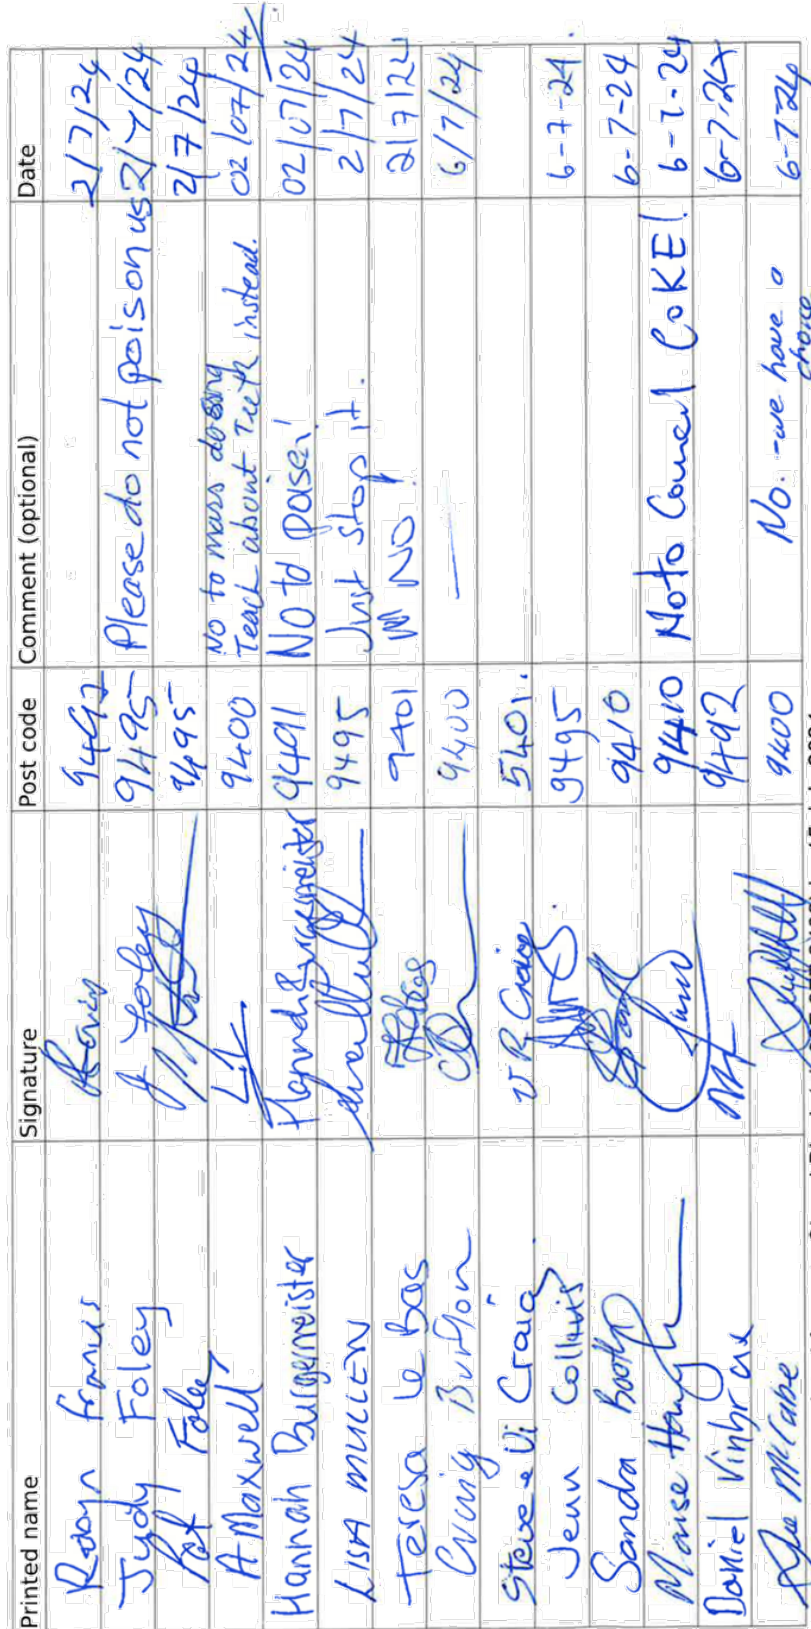 Printed name Signature Post code Comment (optional) Date
Robyn Francis 2/7/24
Judy Foley J Foley 9495 Please do not poison us 2/7/24
Pat Foley 9495 2/7/24
A Maxwell 9400 No to mass dosing 02/07/24
Teach about Teeth instead.
Hannah Burgemeister Hannah Burgemeister 9491 No to 02/07/24
LISA MULLEN 9495 Just stop it. 2/7/24
Teresa Le Bas 9401 NO! 2/7/24
Craig Burton 9400 — 6/7/24
Steve & Vi Craig V R Craig 5401.
Jenn Collins 9495 6-7-24.
Sandra Booth 9410 6-7-24
9410 No to Council COKE! 6-7-24
Daniel Vinbrux 9492 6-7-24
Sue McCabe 9400 No. - we have a 6-7-24
choice